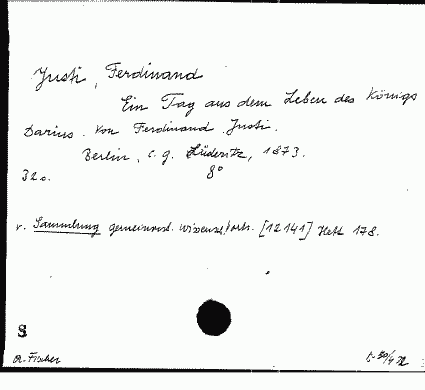 Justi, Ferdinand
Ein Tag aus dem Leben des Königs
Darius. Von Ferdinand Justi.
Berlin, C. G. Lüderitz, 1873.
32 S. 8°
v. Sammlung gemeinverst. wissenschaftl. [12141] Heft 178.
S
A. Fischer